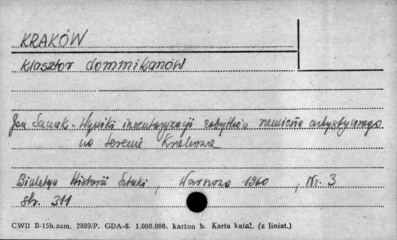 KRAKÓW
klasztor dominikanów
Jan Samek - Wyniki inwentaryzacji zabytków rzemiosła artystycznego
na terenie Krakowa
Biuletyn Historii Sztuki, Warszawa 1960, Nr. 3
str. 311
CWD B-15b.zam. 2899/P. GDA-8. 1.000.000. karton b. Karta katal. (z liniat.)